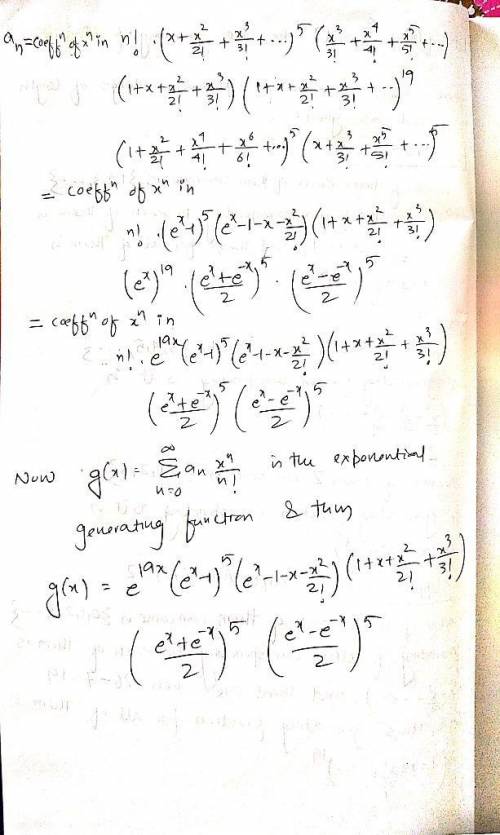 aₙ = coeffⁿ of xⁿ in n! · (x + x²/2! + x³/3! + ···)⁵ (x³/3! + x⁴/4! + x⁵/5! + ···)
(1 + x + x²/2! + x³/3!) (1 + x + x²/2! + x³/3! + ··)¹⁹
(1 + x²/2! + x⁴/4! + x⁶/6! + ···)⁵ (x + x³/3! + x⁵/5! + ···)⁵
= coeffⁿ of xⁿ in
n! · (eˣ-1)⁵ (eˣ-1-x-x²/2!) (1 + x + x²/2! + x³/3!)
(eˣ)¹⁹ · ((eˣ+e⁻ˣ)/2)⁵ · ((eˣ-e⁻ˣ)/2)⁵
= coeffⁿ of xⁿ in
n! · e¹⁹ˣ (eˣ-1)⁵ (eˣ-1-x-x²/2!) (1 + x + x²/2! + x³/3!)
((eˣ+e⁻ˣ)/2)⁵ ((eˣ-e⁻ˣ)/2)⁵
Now g(x) = ∞Σn=0 aₙ xⁿ/n! is the exponential
generating function & thus
g(x) = e¹⁹ˣ (eˣ-1)⁵ (eˣ-1-x-x²/2!) (1 + x + x²/2! + x³/3!)
((eˣ+e⁻ˣ)/2)⁵ ((eˣ-e⁻ˣ)/2)⁵